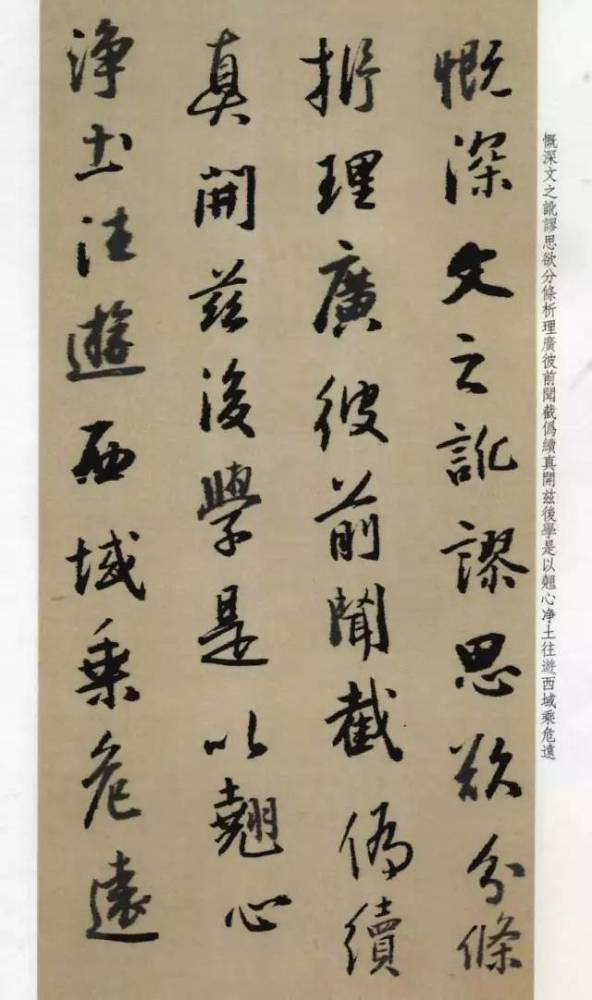 慨深文之訛謬思欲分條析理廣彼前聞截僞續真開兹後學是以翹心净土往遊西域乘危遠
慨深文之訛謬思欲分條
析理廣彼前聞截僞續
真開兹後學是以翹心
淨土往遊西域乘危遠